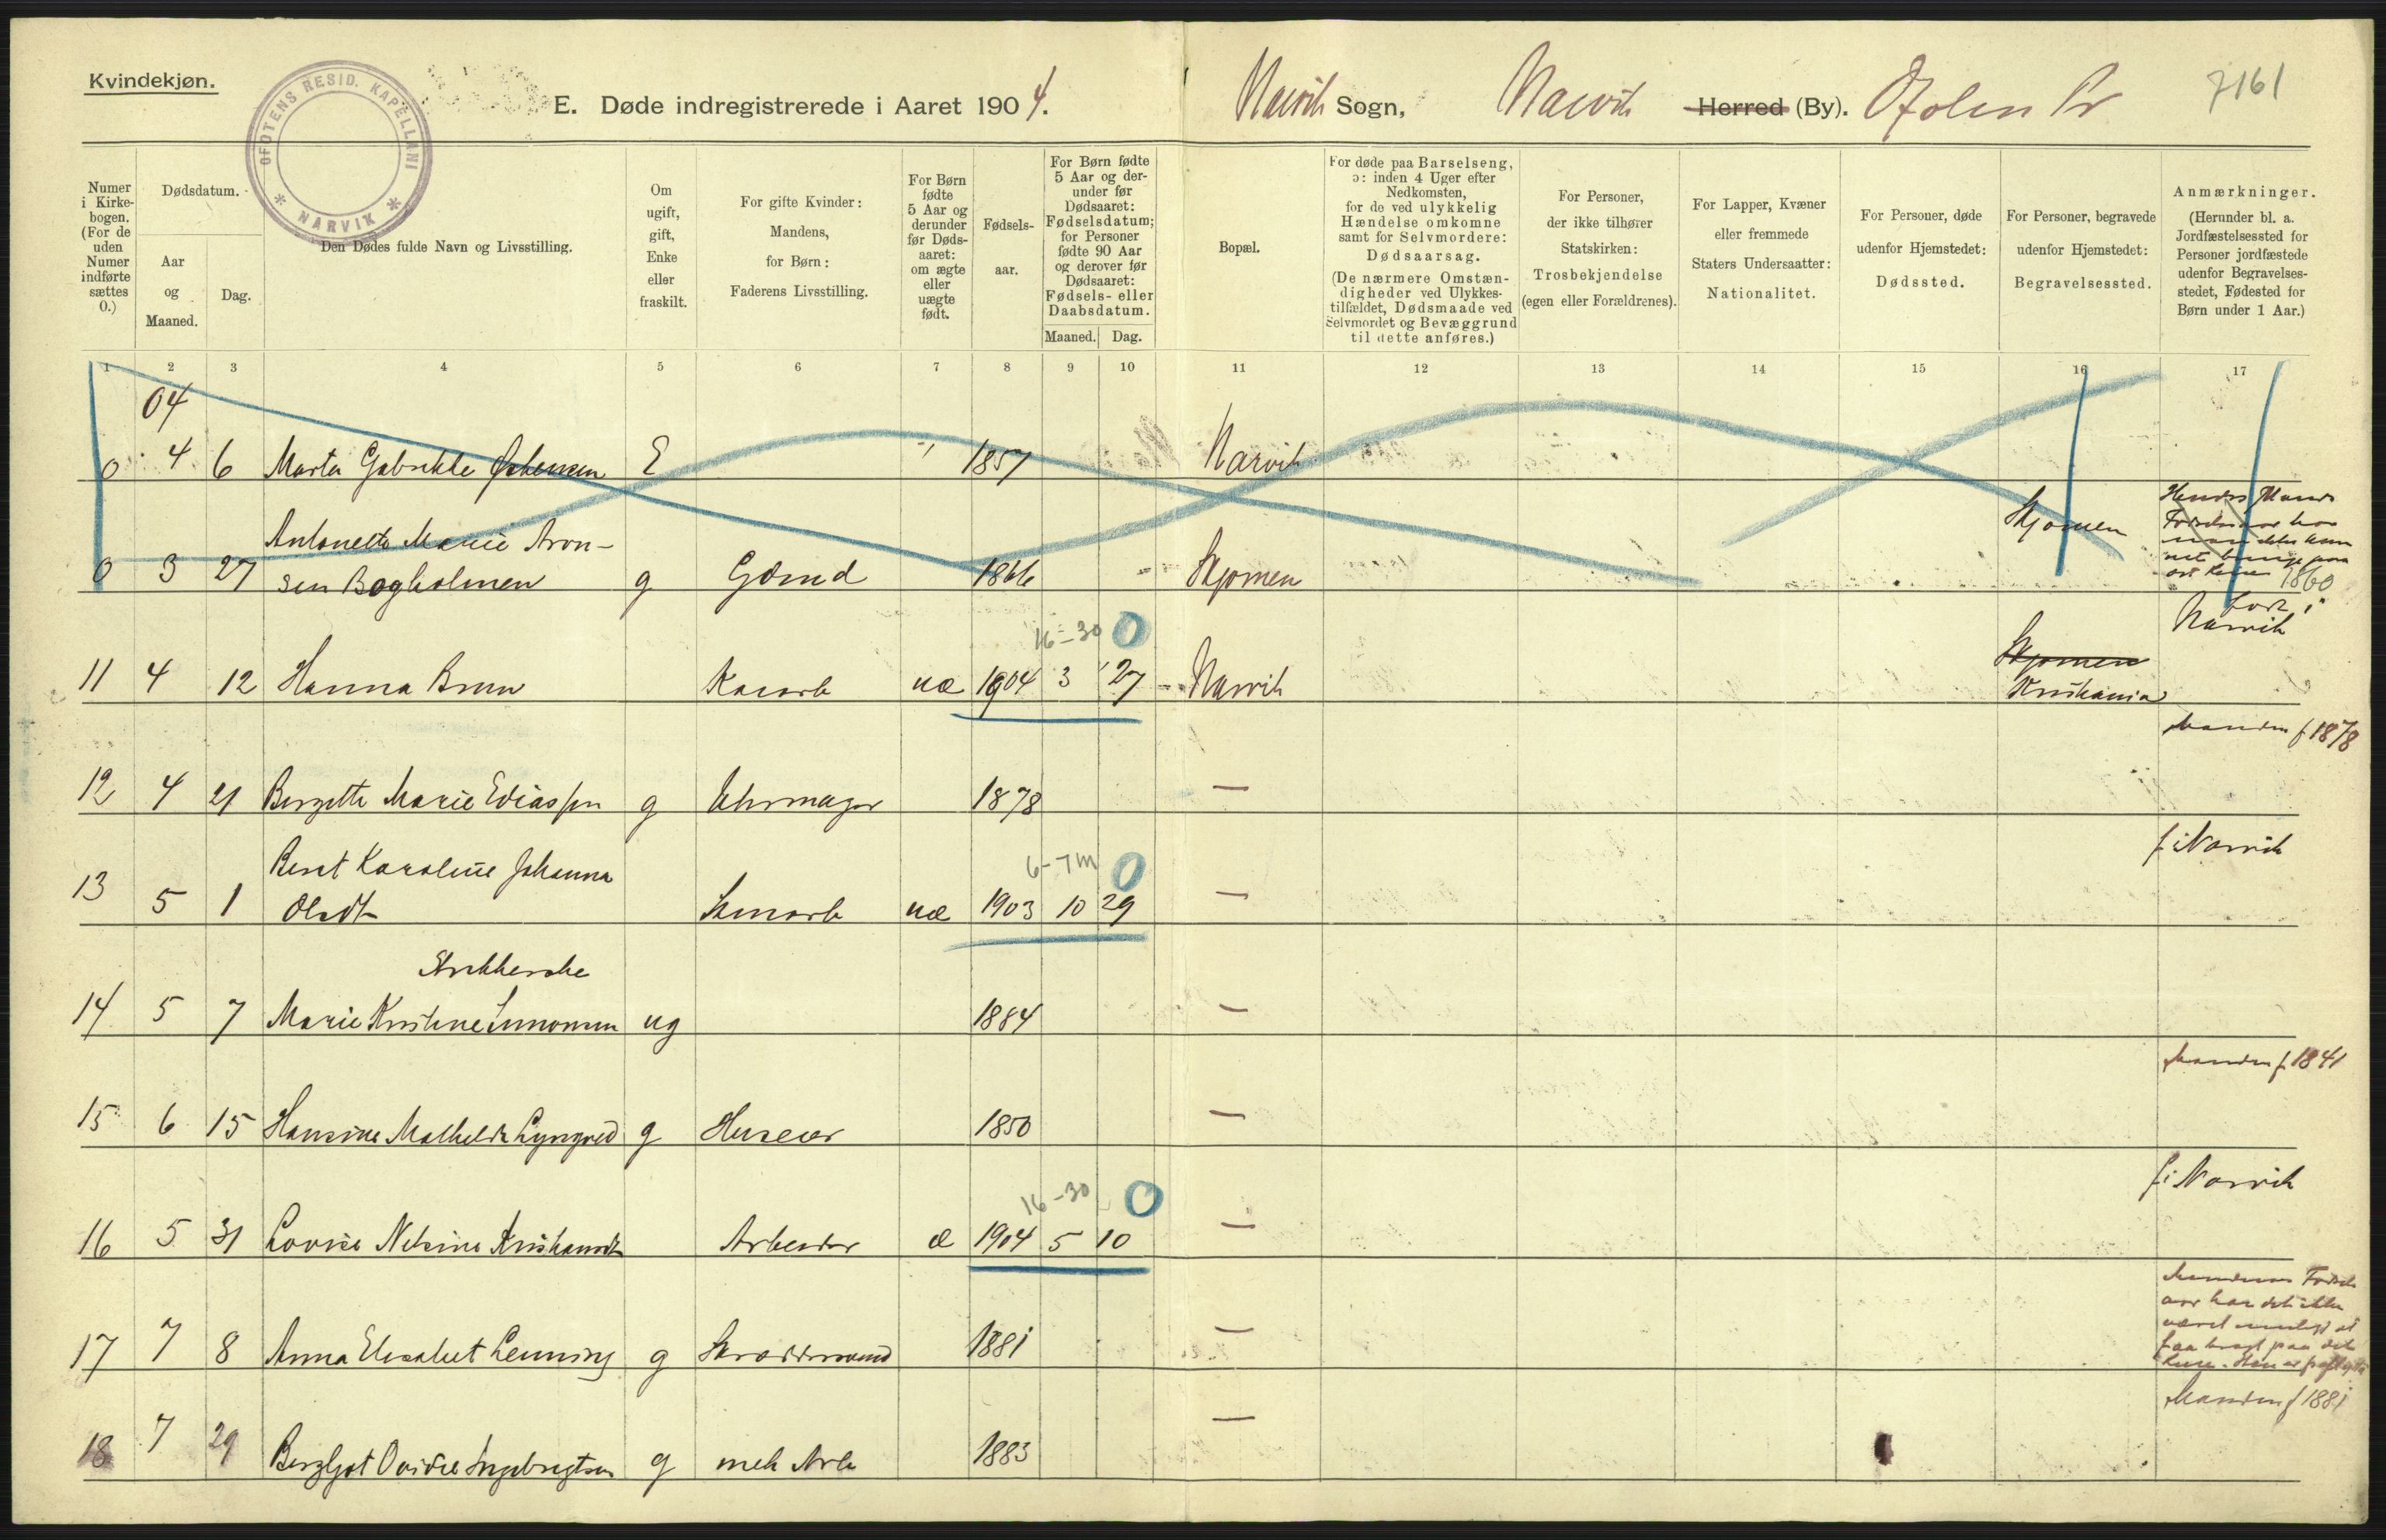 Kvindekjøn.
OFOTENS RESID. KAPELLANI
* NARVIK *
E. Døde indregistrerede i Aaret 1904.
Narvik Sogn, Narvik Herred (By). Ofoten Pr
7161
Numer i Kirkebogen. (For de uden Numer indførte sættes 0.)
Dødsdatum.
Aar og Maaned.
Dag.
Den Dødes fulde Navn og Livsstilling.
Om ugift, gift, Enke eller fraskilt.
For gifte Kvinder: Mandens, for Børn: Faderens Livsstilling.
For Børn fødte 5 Aar og derunder før Døds-aaret: om ægte eller uægte født.
Fødsels-aar.
For Børn fødte 5 Aar og der-under før Dødsaaret: Fødselsdatum; for Personer fødte 90 Aar og derover før Dødsaaret: Fødsels- eller Daabsdatum.
Maaned. Dag.
Bopæl.
For døde paa Barselseng, ɔ: inden 4 Uger efter Nedkomsten, for de ved ulykkelig Hændelse omkomne samt for Selvmordere: Dødsaarsag. (De nærmere Omstæn-digheder ved Ulykkes-tilfældet, Dødsmaade ved Selvmordet og Bevæggrund til dette anføres.)
For Personer, der ikke tilhører Statskirken: Trosbekjendelse (egen eller Forældrenes).
For Lapper, Kvæner eller fremmede Staters Undersaatter: Nationalitet.
For Personer, døde udenfor Hjemstedet: Dødssted.
For Personer, begravede udenfor Hjemstedet: Begravelsessted.
Anmærkninger. (Herunder bl. a. Jordfæstelsessted for Personer jordfæstede udenfor Begravelses-stedet, Fødested for Børn under 1 Aar.)
1 2 3 4 5 6 7 8 9 10 11 12 13 14 15 16 17
04
0 4 6 Marta Gabrikke Johensen E 1857 Narvik
Antonette Marie Aron-
0 3 27 sen Bogholmen g Gdmd 1866 Skjomen Skjomen
1860
født i Narvik
16-30 0
11 4 12 Hanna Brun uæ 1904 3 27 Narvik Skjomen Kristiania
Manden f 1878
12 4 21 Bergitte Marie Eliassen g Uhrmager 1878 —
f. i Narvik
Berit Karoline Johanna 6-7 m 0
13 5 1 Olsdt uæ 1903 10 29 —
Strikkerske
14 5 7 Marie Kristine ug 1884 —
Manden f. 1841
15 6 15 Hansine Mathilde g Huseier 1850 —
f. i Narvik
16-30 0
16 5 31 Lovise Nelsine Kristiansdt Arbeider æ 1904 5 10 —
Mandens Fødsels
aar har det ikke
været muligt at
faa bragt paa det
rene.
17 7 8 Anna Elisabet Lenning g 1881 —
Manden f 1881
18 7 29 Bergljot Ovidie Ingebrigtsen g mek Arb 1883 —